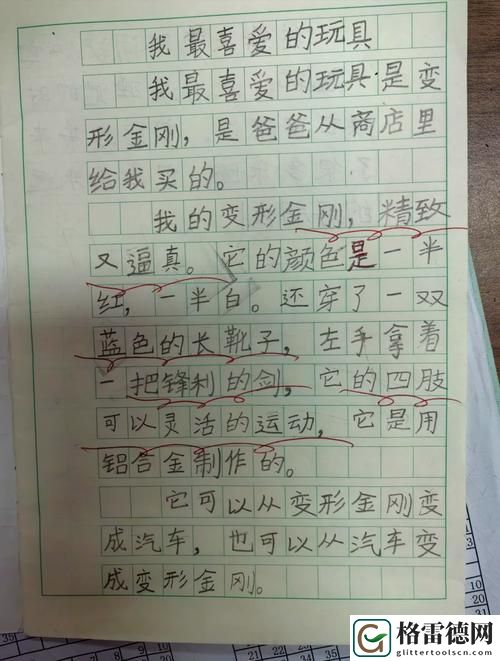 我最喜爱的玩具
我最喜爱的玩具是变
形金刚，是爸爸从商店里
给我买的。
我的变形金刚，精致
又逼真。它的颜色是一半
红，一半白。还穿了一双
蓝色的长靴子，左手拿着
一把锋利的剑，它的四肢
可以灵活的运动，它是用
铝合金制作的。
它可以从变形金刚变
成汽车，也可以从汽车变
成变形金刚。
格雷德网
glittertoolscn.com